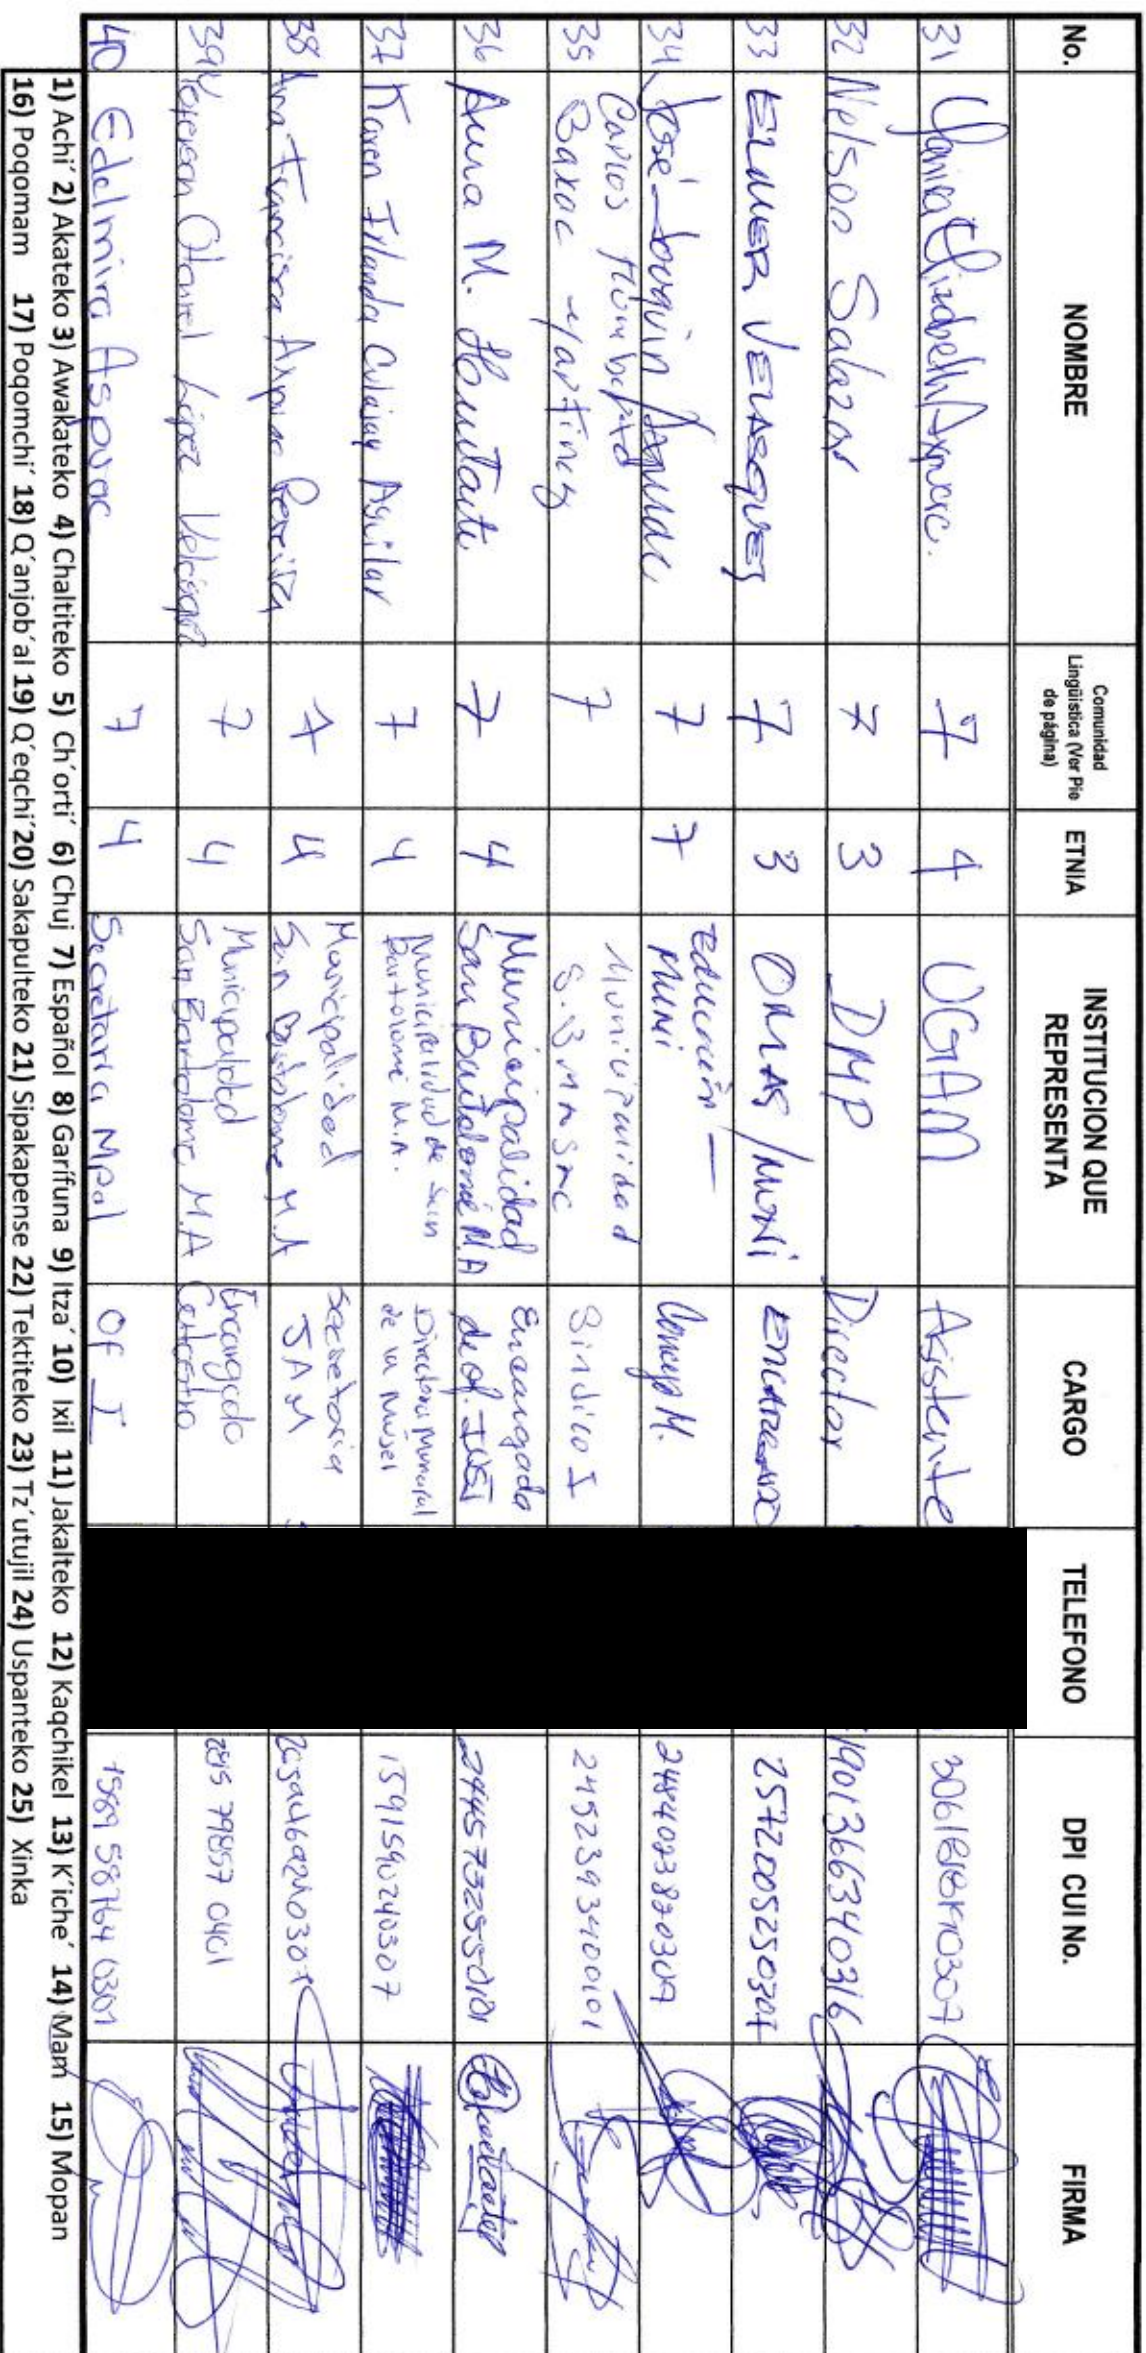 No. NOMBRE Comunidad Lingüística (Ver Pie de página) ETNIA INSTITUCION QUE REPRESENTA CARGO TELEFONO DPI CUI No. FIRMA
31 Elizabeth 7 4 UGAM Asistente
32 Nelson Salazar 7 3 DMP Director 1901366340316
33 ELMER VELASQUEZ 7 3 OMAS / MUNI ENCARGADO
34 José Joaquin 7 7 Educación - MUNI Concejo M.
35 Carlos Humberto Baxac Martinez 7 Municipalidad Sindico I 2452393400101
36 Aura M. 7 4 Municipalidad San Bartolomé M.A Encargada de of.
37 Karen Irlanda Culajay Aguilar 7 4 Municipalidad de San Bartolomé M.A. Directora Municipal de la Mujer 1591590240307
38 Ana Francisca 7 4 Municipalidad San Bartolome M.A Secretaria JAM
39 López Velásquez 7 4 Municipalidad San Bartolome M.A Encargado Catastro 2815 79857 0401
40 Edelmira Aspuac 7 4 Secretaria Mpal Of I 1589 58764 0301
1) Achi´ 2) Akateko 3) Awakateko 4) Chaltiteko 5) Ch´orti´ 6) Chuj 7) Español 8) Garífuna 9) Itza´ 10) Ixil 11) Jakalteko 12) Kaqchikel 13) K´iche´ 14) Mam 15) Mopan
16) Poqomam 17) Poqomchi´ 18) Q´anjob´al 19) Q´eqchi´ 20) Sakapulteko 21) Sipakapense 22) Tektiteko 23) Tz´utujil 24) Uspanteko 25) Xinka